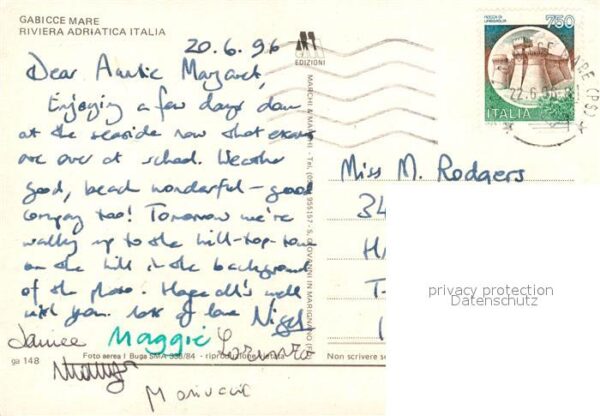 GABICCE MARE
RIVIERA ADRIATICA ITALIA
20.6.96
Dear Auntie Margaret,
Enjoying a few days down
at the seaside now that exams
are over at school. Weather
good, beach wonderful – good
company too! Tomorrow we're
walking up to the hill-top-town
on the hill in the background
of the photo. Hope all's well
with you. Lots of love Nigel
Maggie Lorenzo
ga 148 Foto aerea I Buga SMA 338/84 - riproduzione vietata
EDIZIONI
MARCHI & MARCHI - Tel. 955157 - S. GIOVANNI IN MARIGNANO
ROCCA DI URBISAGLIA
750
ITALIA
22.6.96
MARE (PS)
Miss M. Rodgers
34
H
T-
Non scrivere
privacy protection
Datenschutz